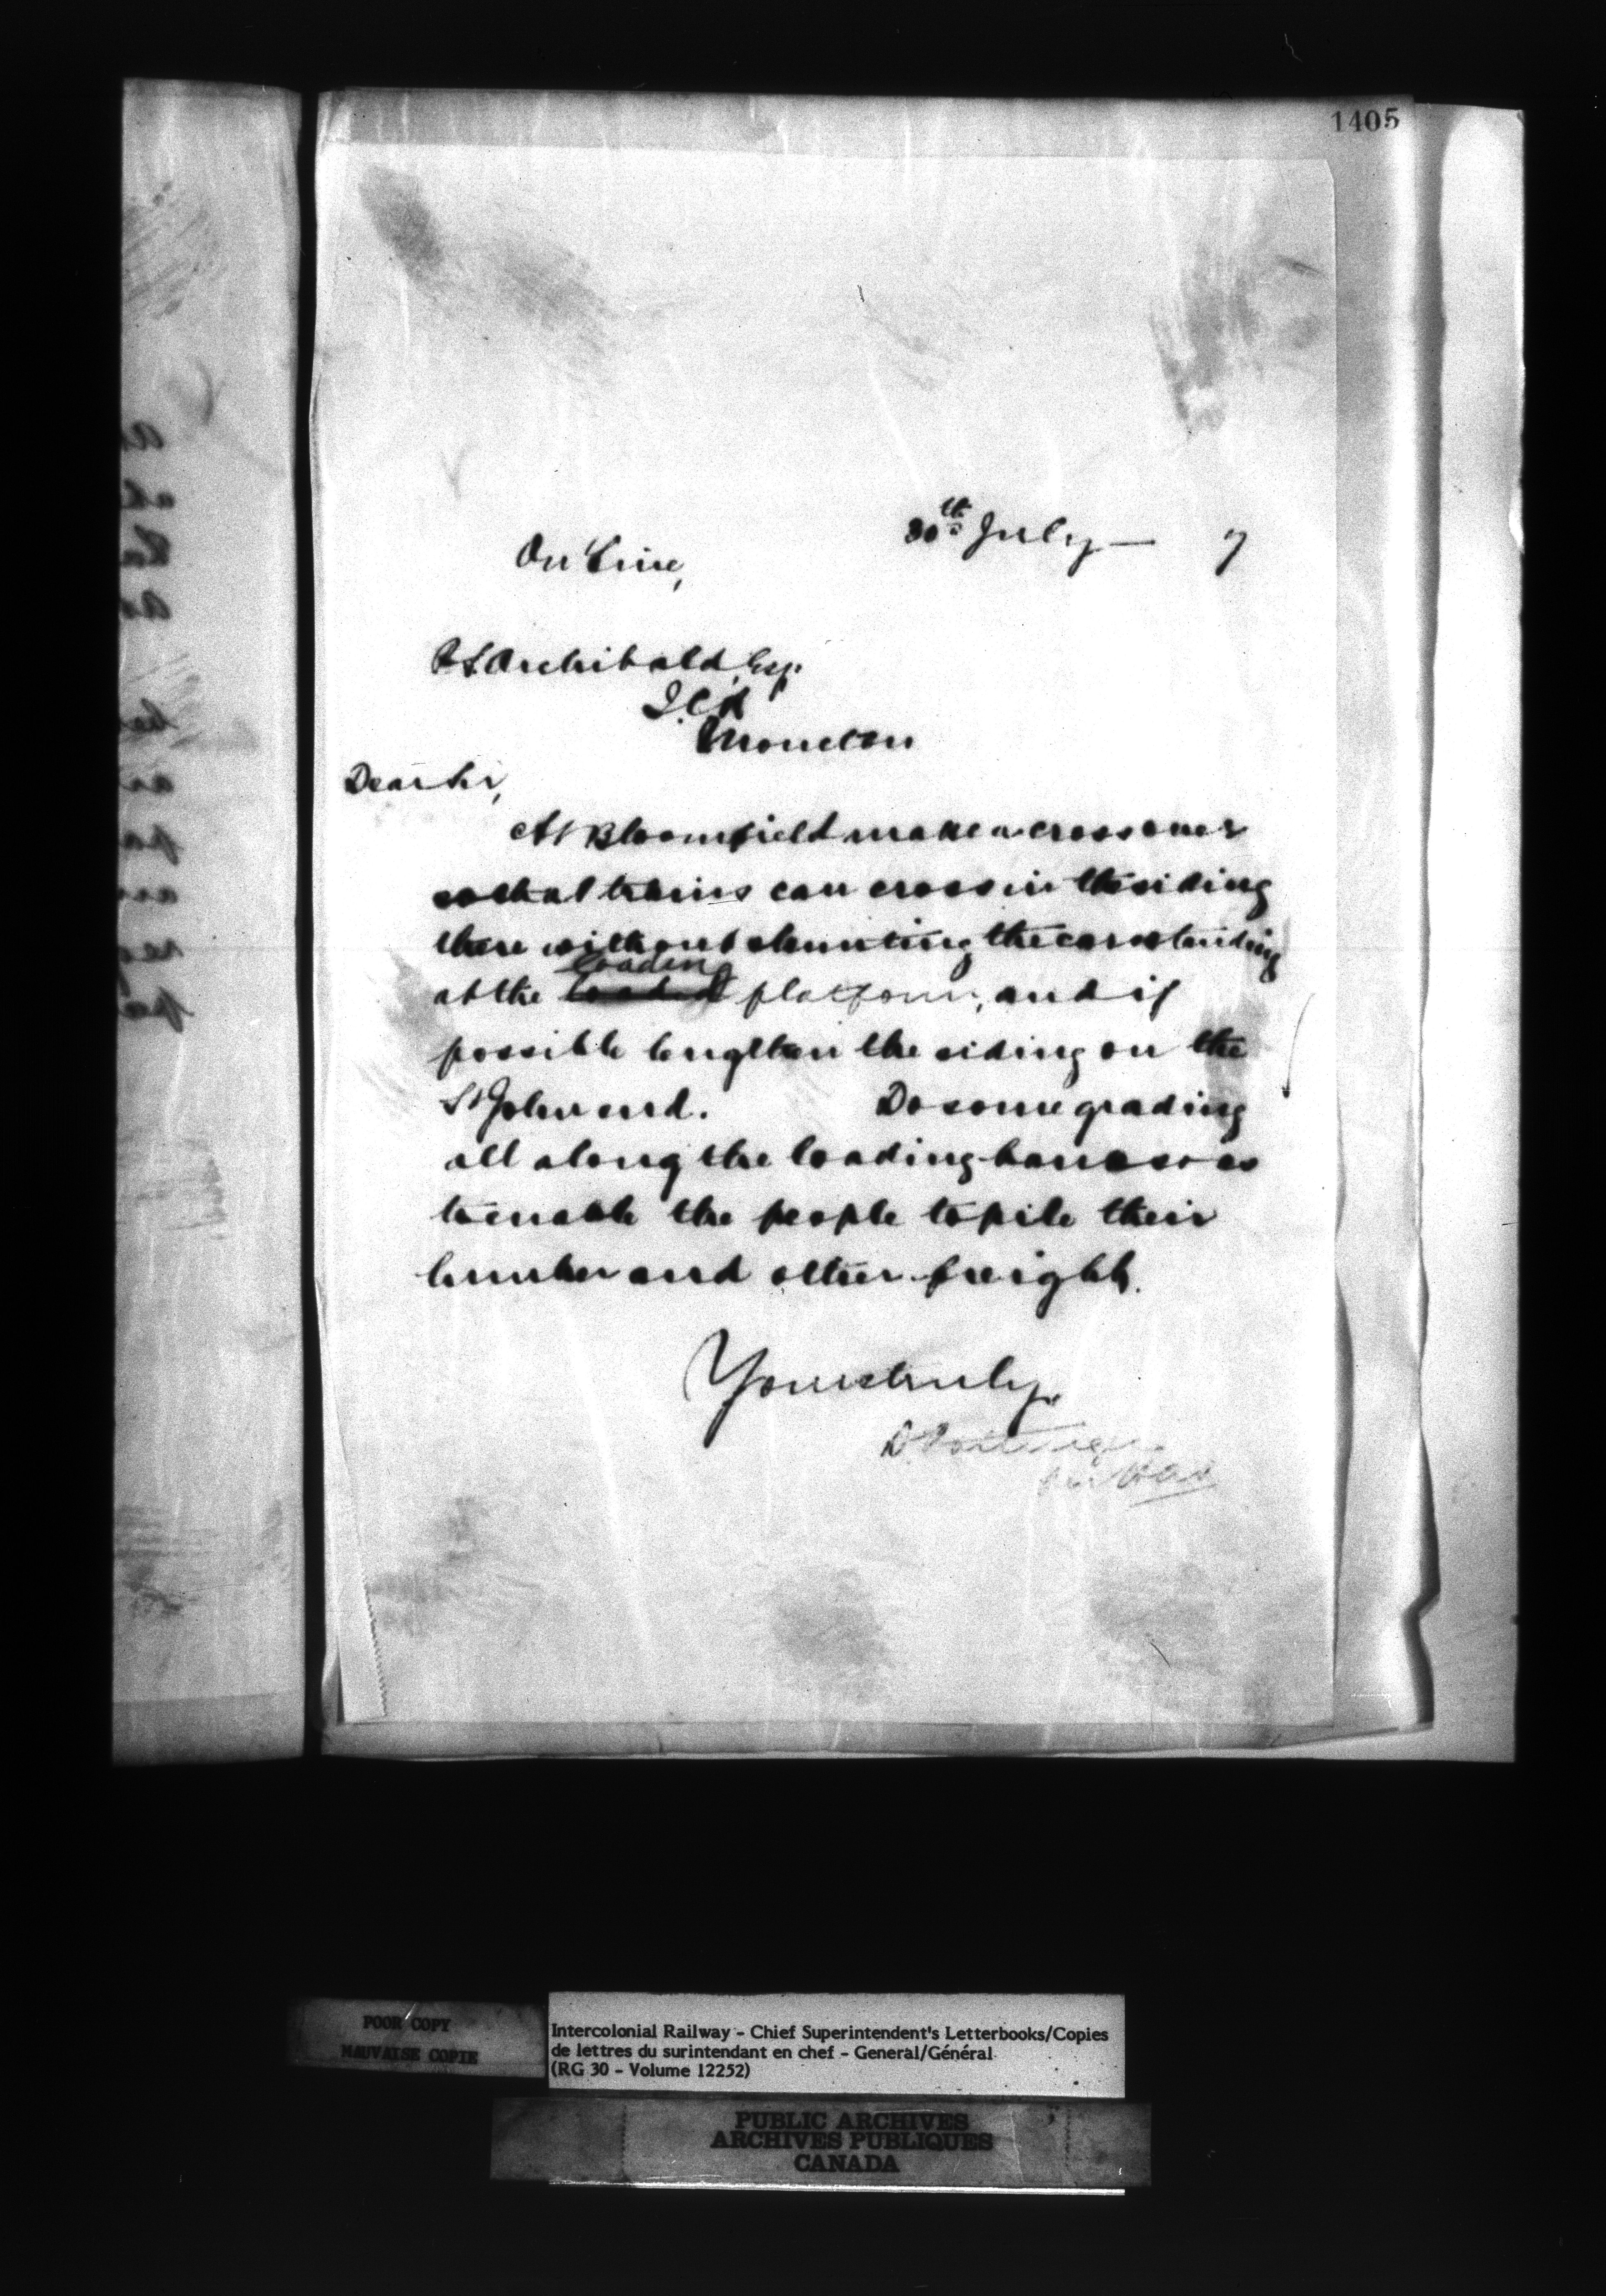 1405
30th July — 7
On Line,
P.S. Archibald, Esq.
I.C.R
Moncton
Dear Sir,
At Bloomfield make a crossover
so that trains can cross in the siding
there without shunting the cars standing
at the loading platform, and if
possible lengthen the siding on the
St John end. Do some grading
all along the loading bank so as
to enable the people to pile their
lumber and other freight.
Yours truly,
D Pottinger
POOR COPY
MAUVAISE COPIE
Intercolonial Railway - Chief Superintendent's Letterbooks/Copies
de lettres du surintendant en chef - General/Général
(RG 30 - Volume 12252)
PUBLIC ARCHIVES
ARCHIVES PUBLIQUES
CANADA